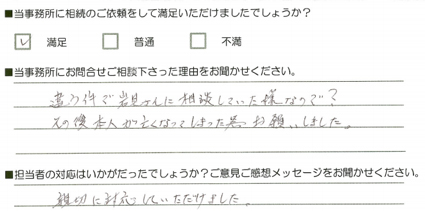 ■当事務所に相続のご依頼をして満足いただけましたでしょうか？
☑ 満足 □ 普通 □ 不満
■当事務所にお問合せご相談下さった理由をお聞かせください。
違う件で岩見さんに相談していた様なので？
その後本人が亡くなってしまった為お願いしました。
■担当者の対応はいかがだったでしょうか？ご意見ご感想メッセージをお聞かせください。
親切に対応していただけました。